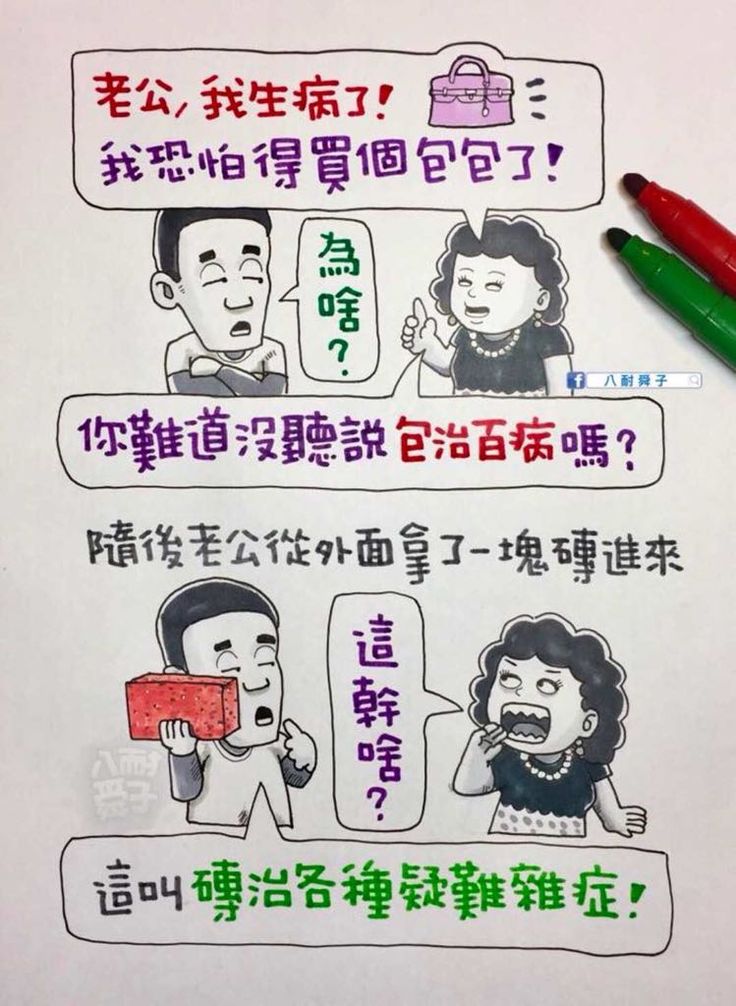 老公,我生病了!
我恐怕得買個包包了!
為啥?
八耐舜子
你難道沒聽說包治百病嗎?
隨後老公從外面拿了一塊磚進來
這幹啥?
八耐舜子
這叫磚治各種疑難雜症!